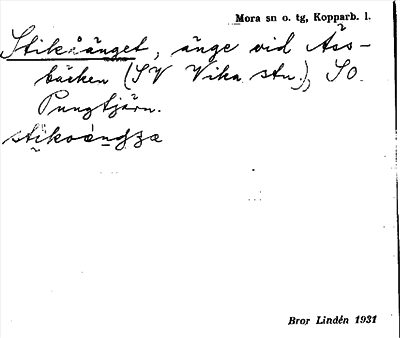 Mora sn o. tg, Kopparb. l.
Stikåänget, änge vid Ås-
bäcken (SV Vika stn.), SO
Pungtjärn.
Bror Lindén 1931